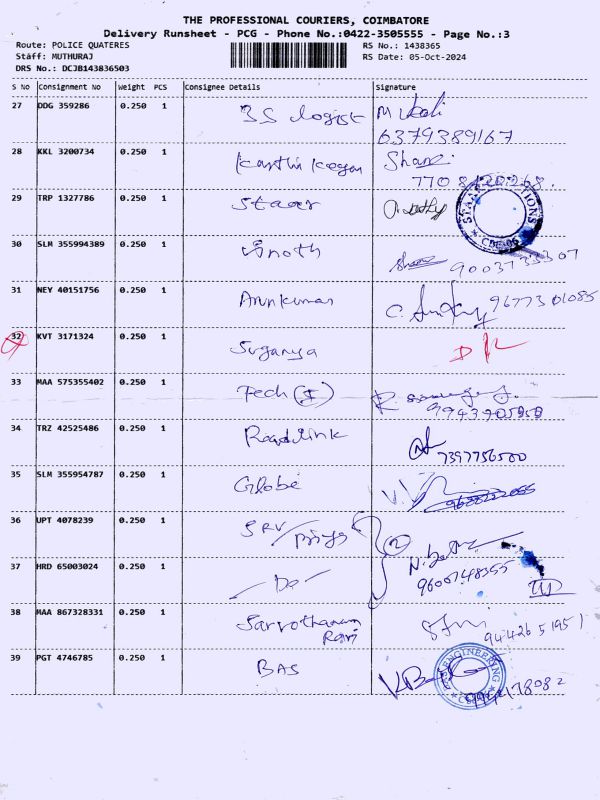 THE PROFESSIONAL COURIERS, COIMBATORE
Delivery Runsheet - PCG - Phone No.:0422-3505555 - Page No.:3
Route: POLICE QUATERES RS No.: 1438365
Staff: MUTHURAJ RS Date: 05-Oct-2024
DRS No.: DCJB143836503
S No Consignment No Weight PCS Consignee Details Signature
27 DDG 359286 0.250 1 3S logist
6379389167
28 KKL 3200734 0.250 1
29 TRP 1327786 0.250 1 Staar
30 SLM 355994389 0.250 1 Vinoth
9003733307
31 NEY 40151756 0.250 1 Arunkumar 9677301085
32 KVT 3171324 0.250 1 Suganya
33 MAA 575355402 0.250 1 Tech (I)
9943905950
34 TRZ 42525486 0.250 1 Roadlink
7397756500
35 SLM 355954787 0.250 1 Globe
36 UPT 4078239 0.250 1 SRV / priya 2
37 HRD 65003024 0.250 1 - Do -
9600748355
38 MAA 867328331 0.250 1 Sarvothaman
Ravi 9442651951
39 PGT 4746785 0.250 1 BAS